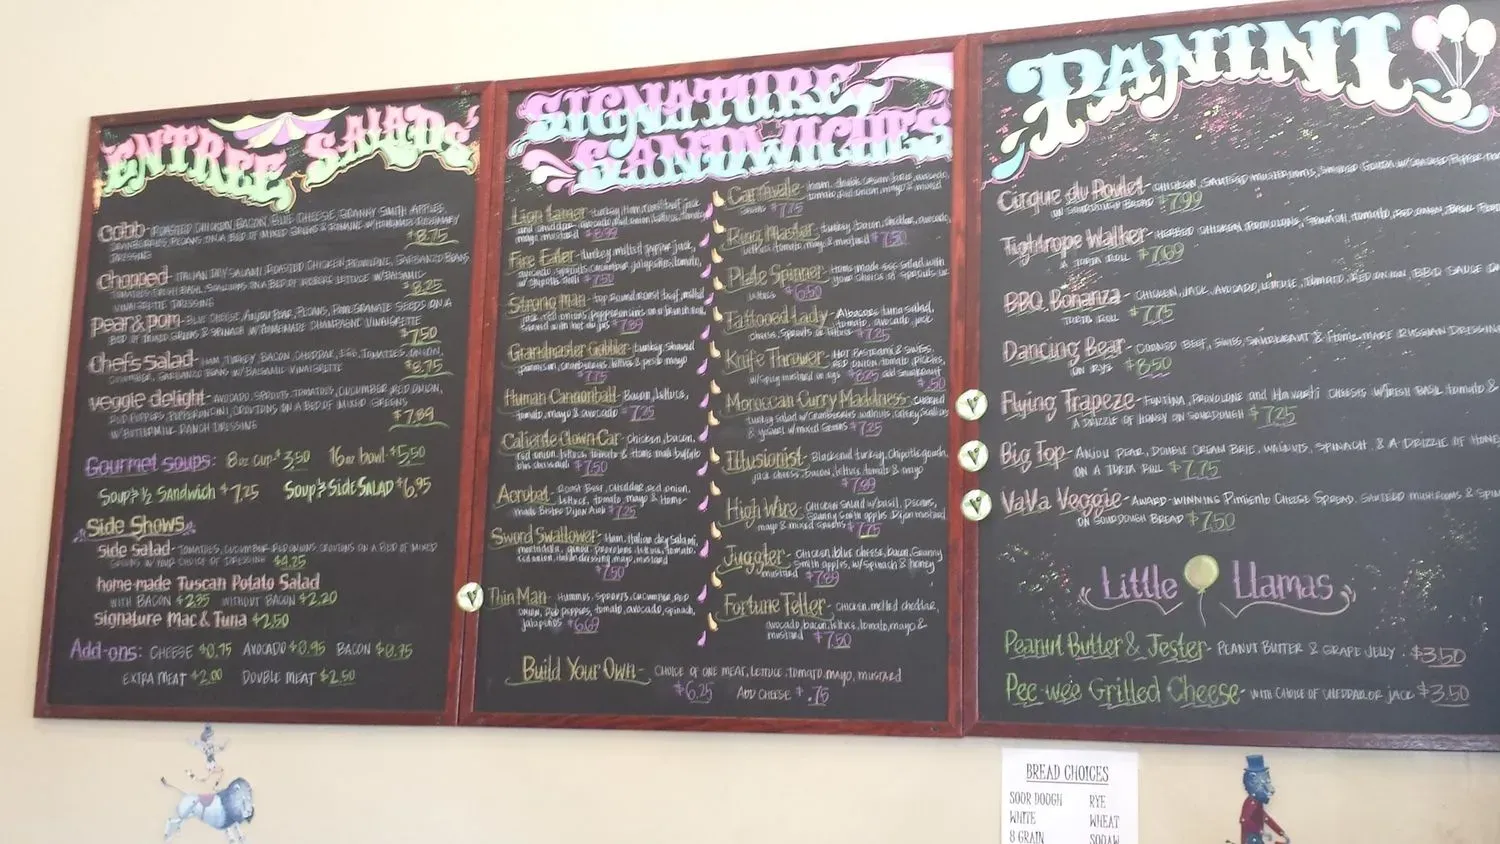 ENTREE SALADS
Cobb - ROASTED CHICKEN, BACON, BLUE CHEESE, GRANNY SMITH APPLES,
CRANBERRIES, PECANS, ON A BED OF MIXED GREENS & ROMAINE W/HOMEMADE ROSEMARY
DRESSING $8.75
Chopped - ITALIAN DRY SALAMI, ROASTED CHICKEN, PROVOLONE, GARBANZO BEANS
TOMATOES, FRESH BASIL, SCALLIONS ON A BED OF ICEBERG LETTUCE W/BALSAMIC
VINAIGRETTE DRESSING $8.25
Pear & Pom - BLUE CHEESE, ANJOU PEAR, PECANS, POMEGRANATE SEEDS ON A
BED OF MIXED GREENS & SPINACH W/HOMEMADE CHAMPAGNE VINAIGRETTE
$7.50
Chef's Salad - HAM, TURKEY, BACON, CHEDDAR, EGG, TOMATOES, ONION,
CUCUMBER, GARBANZO BEANS W/BALSAMIC VINAIGRETTE $8.75
Veggie delight - AVOCADO, SPROUTS, TOMATOES, CUCUMBER, RED ONION,
RED PEPPERS, PEPPERONCINI, CROUTONS ON A BED OF MIXED GREENS
W/BUTTERMILK RANCH DRESSING $7.89
Gourmet soups: 8oz cup $3.50 16oz bowl $5.50
Soup & 1/2 Sandwich $7.25 Soup & Side SALAD $6.95
Side Shows
Side salad - TOMATOES, CUCUMBER, RED ONIONS, CROUTONS ON A BED OF MIXED
GREENS W/YOUR CHOICE OF DRESSING $4.25
home-made Tuscan Potato Salad
WITH BACON $2.35 WITHOUT BACON $2.20
signature Mac & Tuna $2.50
Add-ons: CHEESE $0.75 AVOCADO $0.95 BACON $0.75
EXTRA MEAT $2.00 DOUBLE MEAT $2.50
SIGNATURE
SANDWICHES
Lion Tamer - turkey, ham, roast beef, jack
and cheddar, avocado, red onion, lettuce, tomato,
mayo, mustard $8.99
Fire Eater - turkey, melted pepper jack,
avocado, sprouts, cucumber, jalapeños, tomato,
w/chipotle aioli $7.50
Strong Man - top round roast beef, melted
jack, red onions, pepperoncinis on a french roll
served with hot au jus $7.89
Grandmaster Gobbler - turkey, shaved
parmesan, cranberries, lettuce & pesto mayo
$7.75
Human Cannonball - Bacon, lettuce,
tomato, mayo & avocado $7.25
Caliente Clown Car - chicken, bacon,
red onion, lettuce, tomato & home made buffalo
bleu cheese aioli $7.50
Acrobat - Roast Beef, cheddar, red onion,
lettuce, tomato, mayo & Home-
made Bistro Dijon Aioli $7.25
Sword Swallower - Ham, Italian dry salami,
mortadella, provolone, lettuce, tomato,
red onion, italian dressing, mayo, mustard
$7.50
Thin Man - Hummus, sprouts, cucumber, red
onion, red peppers, tomato, avocado, spinach,
jalapeños $6.69
Carnivale - ham, double cream brie, avocado,
tomato, red onion, mayo & mixed
greens $7.75
Ring Master - turkey, bacon, cheddar, avocado,
lettuce, tomato, mayo & mustard $7.50
Plate Spinner - Home made egg salad with
your choice of sprouts or
lettuce $6.50
Tattooed Lady - Albacore tuna salad,
tomato, avocado, jack
cheese, sprouts or lettuce $7.25
Knife Thrower - Hot Pastrami & swiss,
red onion, tomato, pickles,
w/spicy mustard on rye $8.25 add sauerkraut
$.50
Moroccan Curry Maddness - curried
turkey salad w/cranberries, walnuts, celery, scallions
& yogurt w/mixed greens $7.25
Illusionist - Blackened turkey, chipotle gouda,
jack cheese, bacon, lettuce, tomato & mayo
$7.99
High Wire - Chicken salad w/basil, pecans,
Granny Smith apples, Dijon mustard
mayo & mixed greens $7.75
Juggler - chicken, blue cheese, bacon, Granny
Smith apples, w/spinach & honey
mustard $7.89
Fortune Teller - chicken, melted cheddar,
avocado, bacon, lettuce, tomato, mayo &
mustard $7.50
Build Your Own - CHOICE OF ONE MEAT, LETTUCE, TOMATO, MAYO, MUSTARD
$6.25 ADD CHEESE $.75
PANINI
Cirque du Poulet - CHICKEN, SAUTEED MUSHROOMS, SMOKED GOUDA, W/CRACKED PEPPER
ON SOURDOUGH BREAD $7.99
Tightrope Walker - HERBED CHICKEN, PROVOLONE, SPINACH, TOMATO, RED ONION, BASIL
A TORTA ROLL $7.69
BBQ Bonanza - CHICKEN, JACK, AVOCADO, LETTUCE, TOMATO, RED ONION, BBQ SAUCE
TORTA ROLL $7.75
Dancing Bear - CORNED BEEF, SWISS, SAUERKRAUT & HOME MADE RUSSIAN DRESSING
ON RYE $8.50
V Flying Trapeze - FONTINA, PROVOLONE and Havarti CHEESES W/FRESH BASIL, TOMATO &
A DRIZZLE OF HONEY ON SOURDOUGH $7.25
V Big Top - ANJOU PEAR, DOUBLE CREAM BRIE, WALNUTS, SPINACH, & A DRIZZLE OF HONEY
ON A TORTA ROLL $7.75
V VaVa Veggie - AWARD-WINNING Pimiento CHEESE SPREAD, SAUTEED MUSHROOMS &
ON SOURDOUGH BREAD $7.50
Little Llamas
Peanut Butter & Jester - PEANUT BUTTER & GRAPE JELLY . $3.50
Pee-wee Grilled Cheese - WITH CHOICE OF CHEDDAR OR JACK $3.50
BREAD CHOICES
SOUR DOUGH RYE
WHITE WHEAT
8 GRAIN